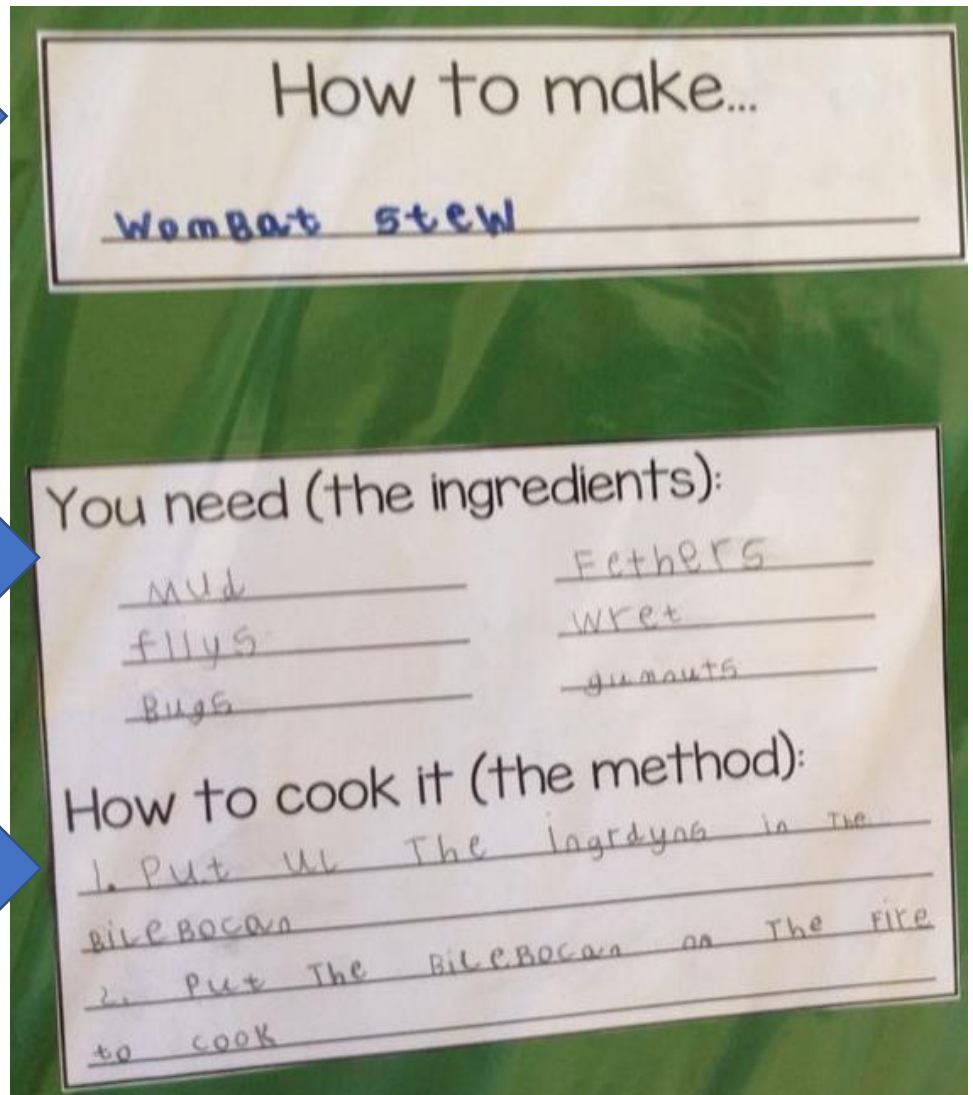 How to make...
WomBat stew
You need (the ingredients):
Mud
fllys
Bugs
Fethers
wret
gumnuts
How to cook it (the method):
1. Put ul The ingrdyns in The
BileBocan
2. Put The BileBocan on The Fire
to cook